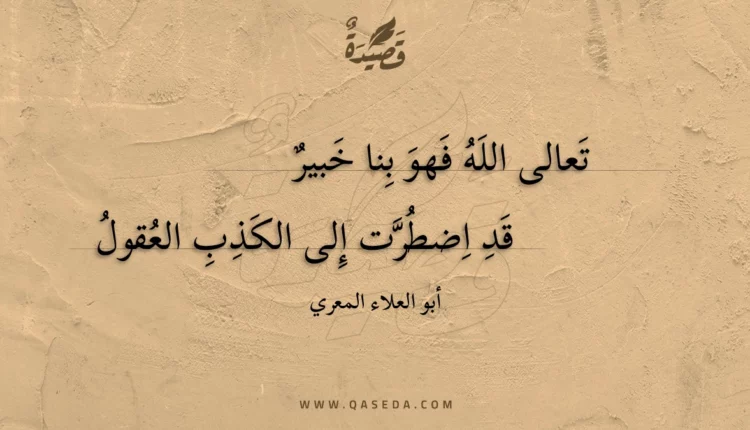 قَصِيدَةٌ
تَعالى اللَهُ فَهوَ بِنا خَبيرٌ
قَدِ اِضطُرَّت إِلى الكَذِبِ العُقولُ
أبو العلاء المعري
WWW.QASEDA.COM